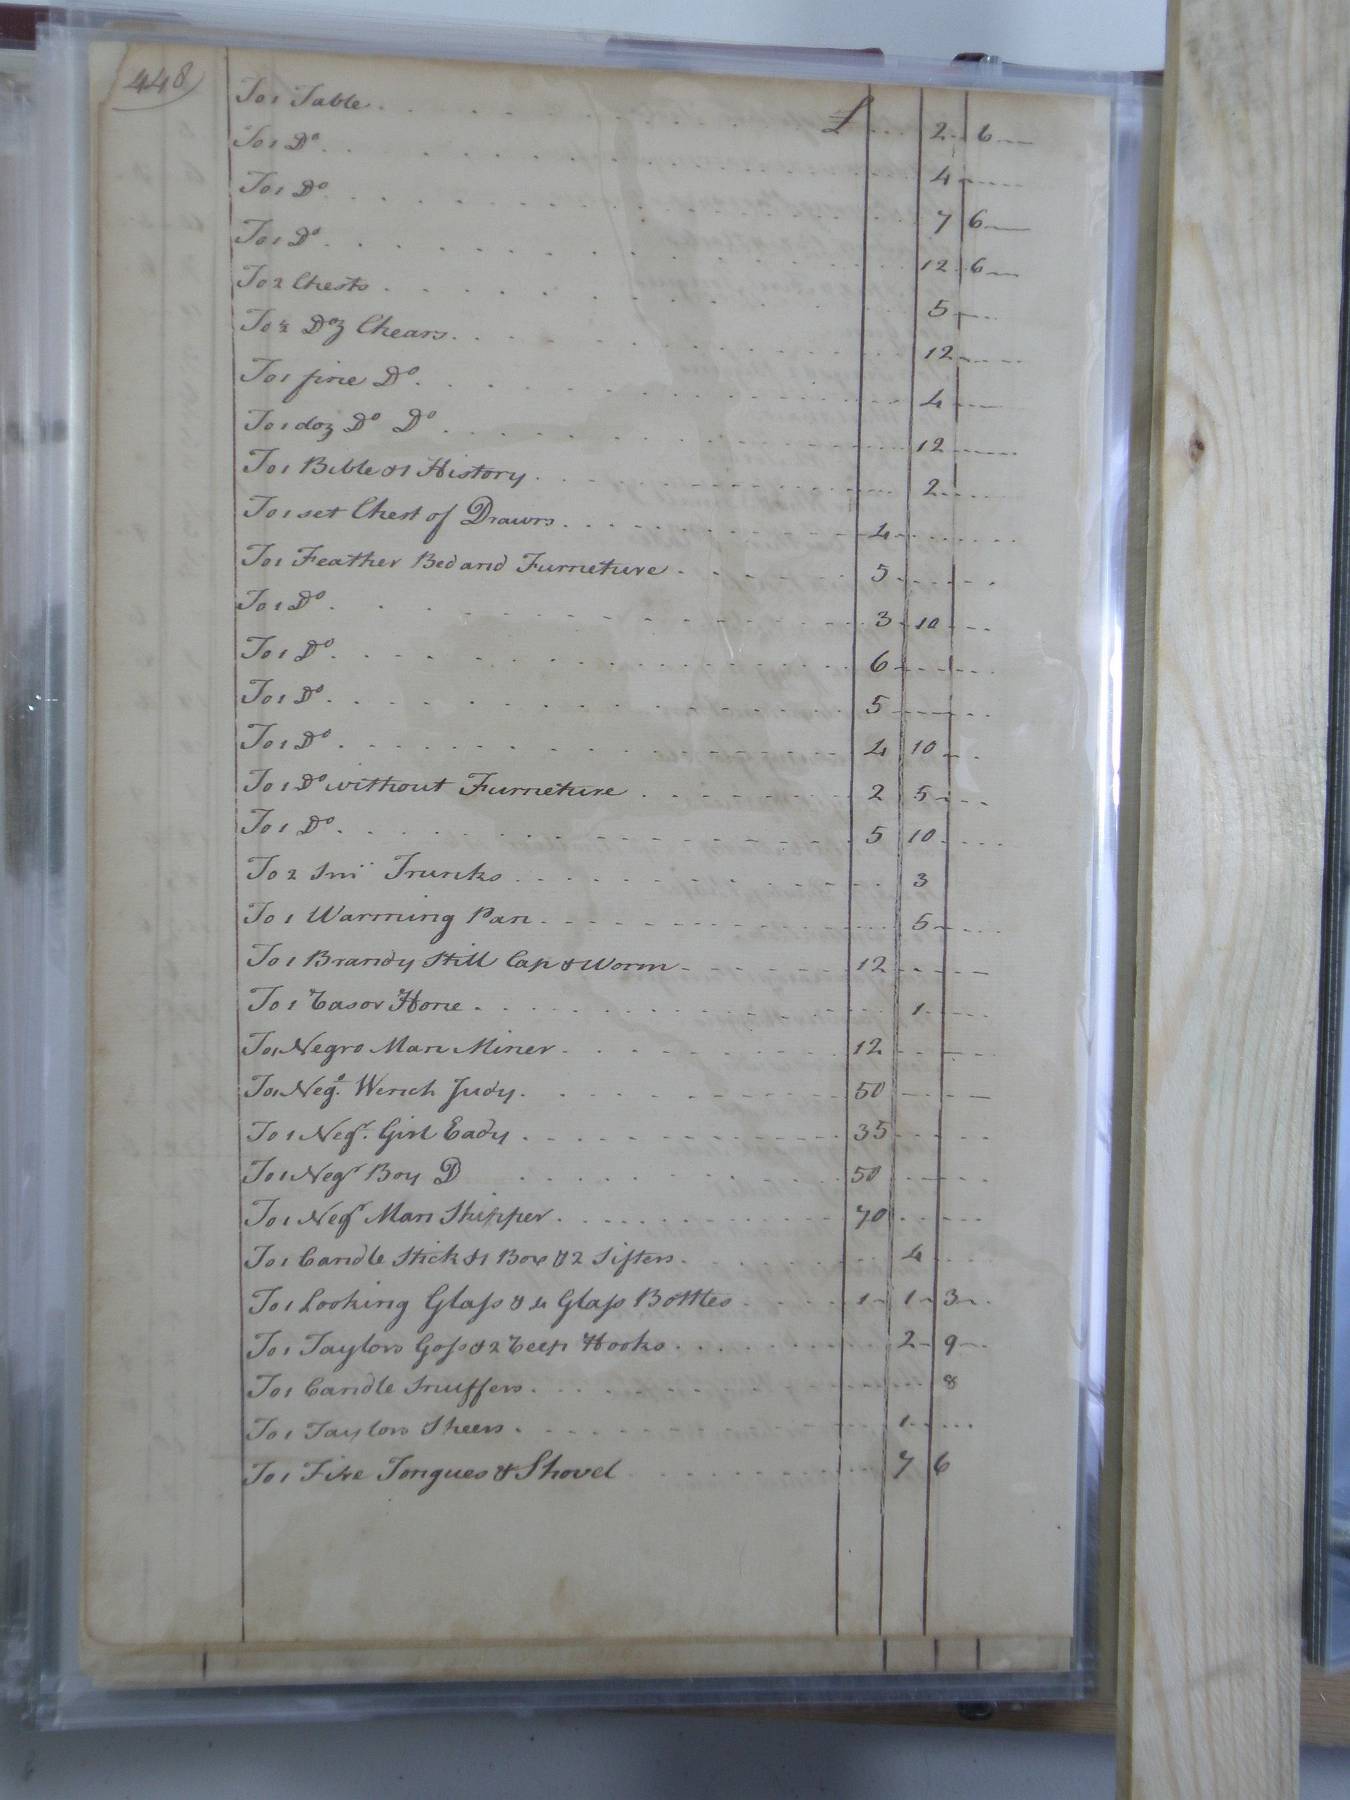 448
To 1 Table . . . £ . . 2 . 6
To 1 Do . . . 4
To 1 Do . . . 7 6
To 1 Do . . . 12 6
To 2 Chests . . . 5
To ½ Doz Chears . . . 12
To 1 fine Do . . . 4
To 1 doz Do Do . . . 12
To 1 Bible & 1 History . . . 2
To 1 set Chest of Drawrs . . . 4
To 1 Feather Bed and Furneture . . . 5
To 1 Do . . . 3 10
To 1 Do . . . 6
To 1 Do . . . 5
To 1 Do . . . 4 10
To 1 Do without Furneture . . . 2 5
To 1 Do . . . 5 10
To 2 Trunks . . . 3
To 1 Warming Pan . . . 5
To 1 Brandy Still Cap & Worm . . . 12
To 1 Rasor Hone . . . 1
To 1 Negro Man Miner . . . 12
To 1 Nego. Wench Judy . . . 50
To 1 Negr. Girl Eady . . . 35
To 1 Negr Boy D . . . 50
To 1 Negr Man Skipper . . . 70
To 1 Candle Stick & 1 Box & 2 Sifters . . . 4
To 1 Looking Glass & 4 Glass Bottles . . . 1 1 3
To 1 Taylors Goss & 2 Reep Hooks . . . 2 9
To 1 Candle Snuffers . . . 8
To 1 Taylors Sheers . . . 1
To 1 Fire Tongues & Shovel . . . 7 6